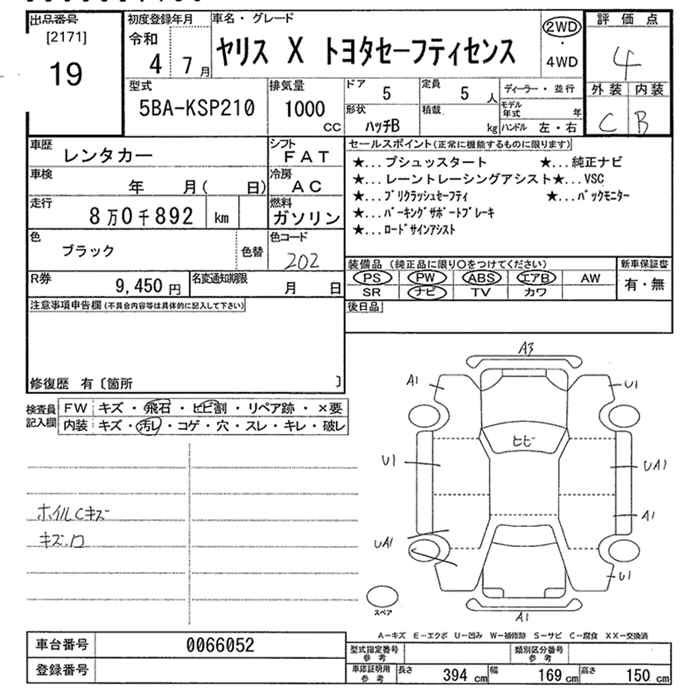 出品番号 初度登録年月 車名・グレード 2WD 評価点
[2171] 令和 ヤリス X トヨタセーフティセンス ・ 4
19 4年 7月 4WD
型式 排気量 ドア 5 定員 5人 ディーラー・並行 外装 内装
5BA-KSP210 1000 CC 形状 ハッチB 積載 kg モデル年式 年 C B
ハンドル 左・右
車歴 レンタカー シフト FAT セールスポイント(正常に機能するものに限ります)
車検 年 月( 日) 冷房 AC ★...プシュッスタート ★...純正ナビ
走行 8万0千892 km 燃料 ガソリン ★...レーントレーシングアシスト★...VSC
★...プリクラッシュセーフティ ★...バックモニター
★...パーキングサポートブレーキ
色 ブラック 色替 色コード 202 ★...ロードサインアシスト
R券 9,450円 名変通知期限 月 日 装備品(純正品に限り〇をつけてください) 新車保証書
PS PW ABS エアB AW 有・無
SR ナビ TV カワ
注意事項申告欄(不具合内容等は具体的に記入して下さい) 後日品
修復歴 有〔箇所 〕
検査員記入欄 FW キズ・飛石・ヒビ割・リペア跡・×要
内装 キズ・汚レ・コゲ・穴・スレ・キレ・破レ
A3
A1 U1
ヒビ
U1 UA1
A1
UA1
U1
A1
ホイルCキズ
キズ.ワ
スペア
A-キズ E-エクボ U-凹み W-補修跡 S-サビ C-腐食 XX-交換済
車台番号 0066052 型式指定番号 参考 類別区分番号 参考
登録番号 車庫証明用 参考 長さ 394 cm 幅 169 cm 高さ 150 cm